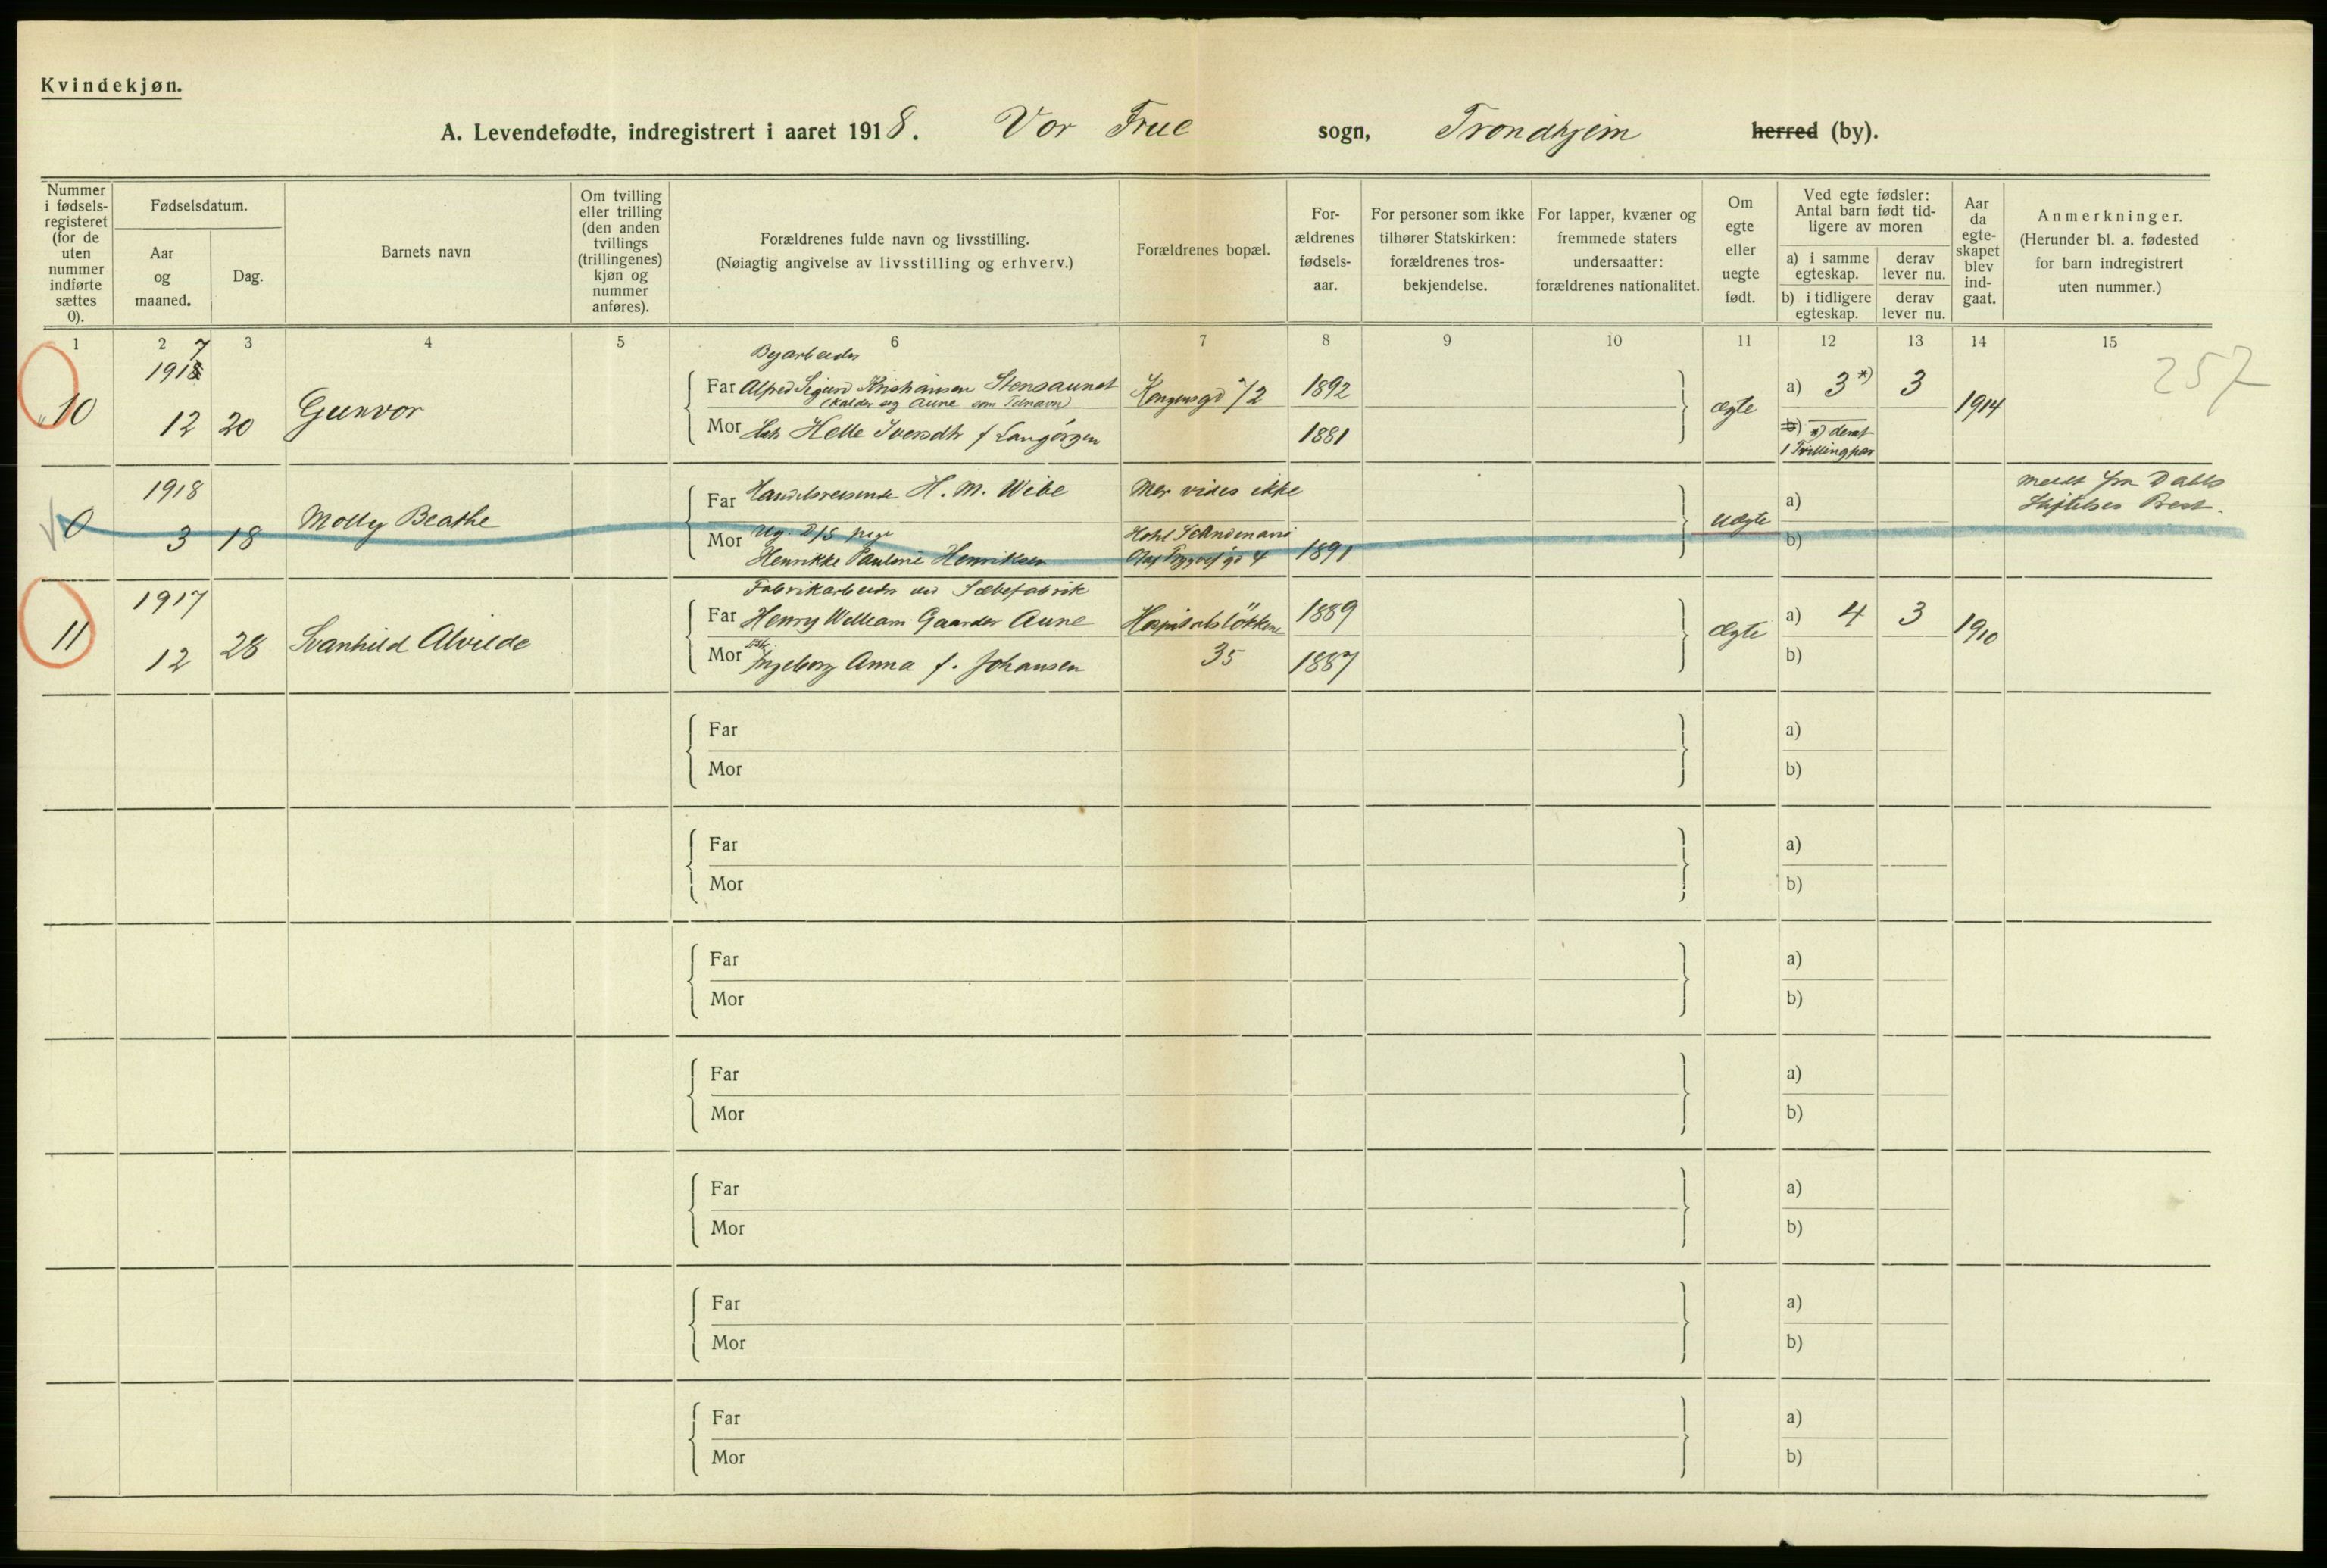 Kvindekjøn.
A. Levendefødte, indregistrert i aaret 1918. Vor Frue sogn, Trondhjem herred (by).
Nummer i fødsels-registeret (for de uten nummer indførte sættes 0).
Fødselsdatum.
Aar og maaned.
Dag.
Barnets navn
Om tvilling eller trilling (den anden tvillings (trillingenes) kjøn og nummer anføres).
Forældrenes fulde navn og livsstilling.
(Nøiagtig angivelse av livsstilling og erhverv.)
Forældrenes bopæl.
For-ældrenes fødsels-aar.
For personer som ikke tilhører Statskirken: forældrenes tros-bekjendelse.
For lapper, kvæner og fremmede staters undersaatter: forældrenes nationalitet.
Om egte eller uegte født.
Ved egte fødsler: Antal barn født tid-ligere av moren
a) i samme egteskap.
derav lever nu.
b) i tidligere egteskap.
derav lever nu.
Aar da egte-skapet blev ind-gaat.
Anmerkninger.
(Herunder bl. a. fødested for barn indregistrert uten nummer.)
1 2 3 4 5 6 7 8 9 10 11 12 13 14 15
257
10
1917
12 20
Gunvor
Byarbeider
Far Alfred Sigurd Kristiansen Stensaunet
(kalder sig Aune som
Mor Helle Iversdtr f Langörgen
Kongensgd 72
1892
1881
ægte
a) 3*) 3
b) *) deraf
1 Tvillingpar
1914
0
1918
3 18
Molly Beathe
Far Handelsreisende H. M. Wibe
Mor Ug. pige
Henrikke Pauline Henriksen
Mer vides ikke
Olaf Trygves gd 4
1891
uægte
a)
b)
meldt fra Dahls
Stiftelses Best.
11
1917
12 28
Svanhild Alvilde
Fabrikarbeider ved Sæbefabrik
Far Henry William Gaarder Aune
Mor Ingeborg Anna f. Johansen
Hospitalsløkken
35
1889
1887
ægte
a) 4 3
b)
1910
Far
Mor
a)
b)
Far
Mor
a)
b)
Far
Mor
a)
b)
Far
Mor
a)
b)
Far
Mor
a)
b)
Far
Mor
a)
b)
Far
Mor
a)
b)